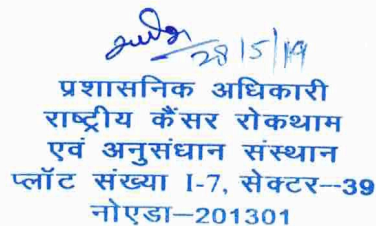 28/5/19
प्रशासनिक अधिकारी
राष्ट्रीय कैंसर रोकथाम
एवं अनुसंधान संस्थान
प्लॉट संख्या I-7, सेक्टर--39
नोएडा–201301